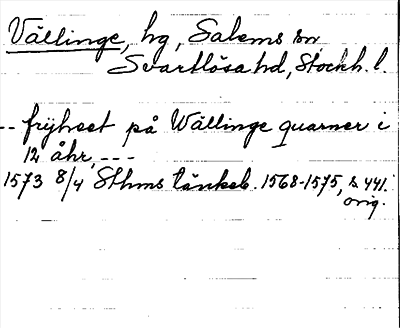 Vällinge, hg, Salems sn,
Svartlösa hd, Stockh. l.
-- frijheet på Wällinge quarner i
12 åhr, ---
1573 8/4 Sthms tänkeb. 1568-1575, s. 441.
orig.